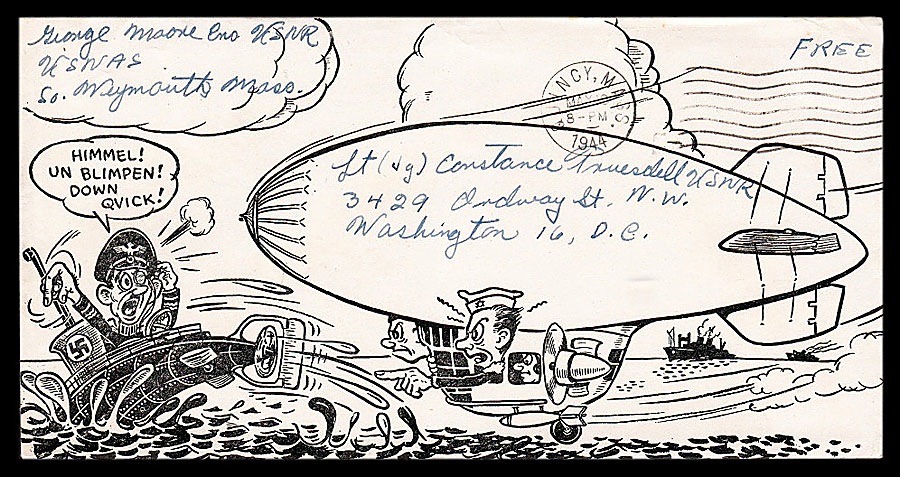 George Moore Ens USNR
USNAS
So. Weymouth, Mass.
FREE
NCY, M
8-PM
1944
HIMMEL!
UN BLIMPEN!
DOWN
QVICK!
Lt (jg) Constance Truesdell USNR
3429 Ordway St. N.W.
Washington 16, D.C.